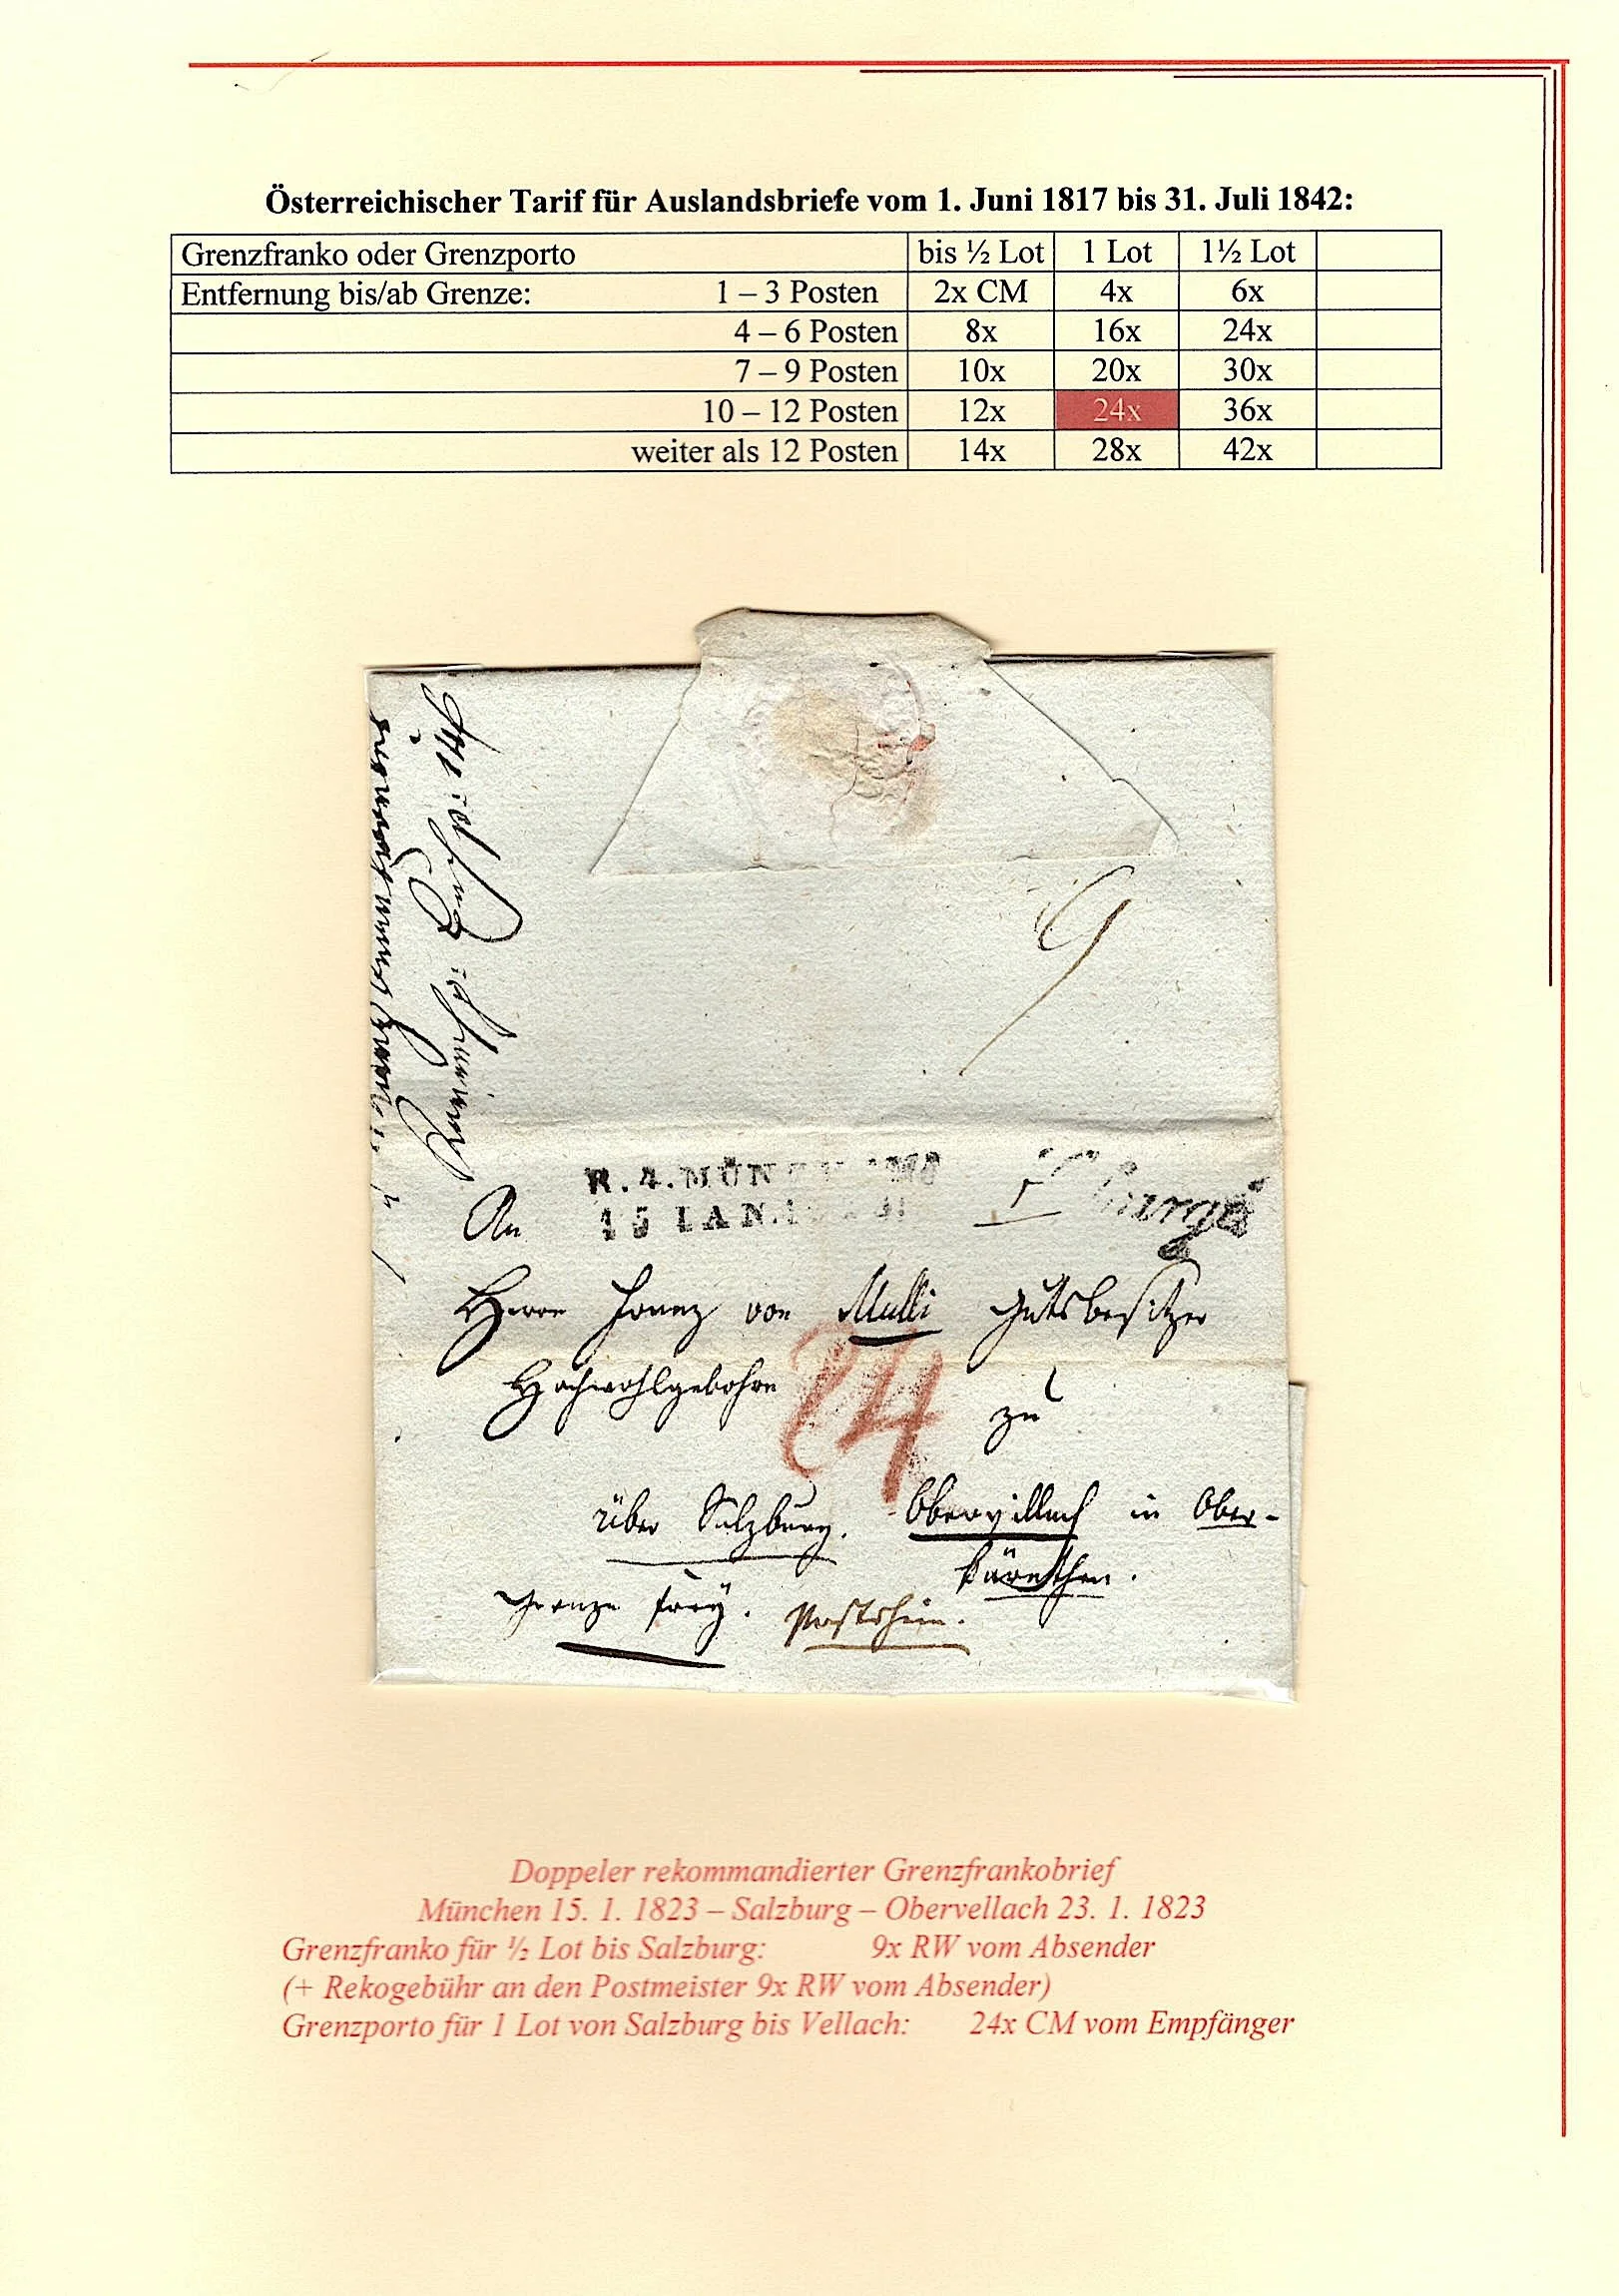 Österreichischer Tarif für Auslandsbriefe vom 1. Juni 1817 bis 31. Juli 1842:
Grenzfranko oder Grenzporto bis ½ Lot 1 Lot 1½ Lot
Entfernung bis/ab Grenze: 1 – 3 Posten 2x CM 4x 6x
4 – 6 Posten 8x 16x 24x
7 – 9 Posten 10x 20x 30x
10 – 12 Posten 12x 24x 36x
weiter als 12 Posten 14x 28x 42x
9
R.4.MÜN
15 IAN.
An
Herrn Franz von Mulli Gutsbesitzer
Hochwohlgebohrn
24
zu
über Salzburg. Obervillach in Ober-
kärnthen.
Grenze frey. Postschein.
Doppeler rekommandierter Grenzfrankobrief
München 15. 1. 1823 – Salzburg – Obervellach 23. 1. 1823
Grenzfranko für ½ Lot bis Salzburg: 9x RW vom Absender
(+ Rekogebühr an den Postmeister 9x RW vom Absender)
Grenzporto für 1 Lot von Salzburg bis Vellach: 24x CM vom Empfänger